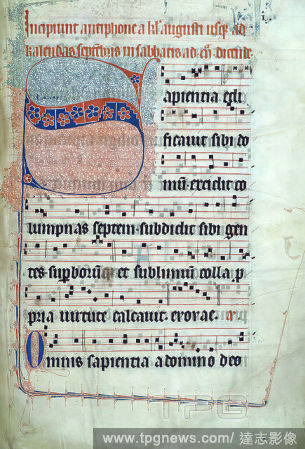 Incipiunt antiphone a kl' augusti usq; ad
kalendas septembris in sabbatis ad
Sapientia edi
ficavit sibi do
mum excidit co
lumpnas septem subdidit sibi gen
tes supborumq; et sublimium colla p
pria virtute calcavit evovae.
Omnis sapientia a domino deo
TPG
www.tpgnews.com/ 達志影像